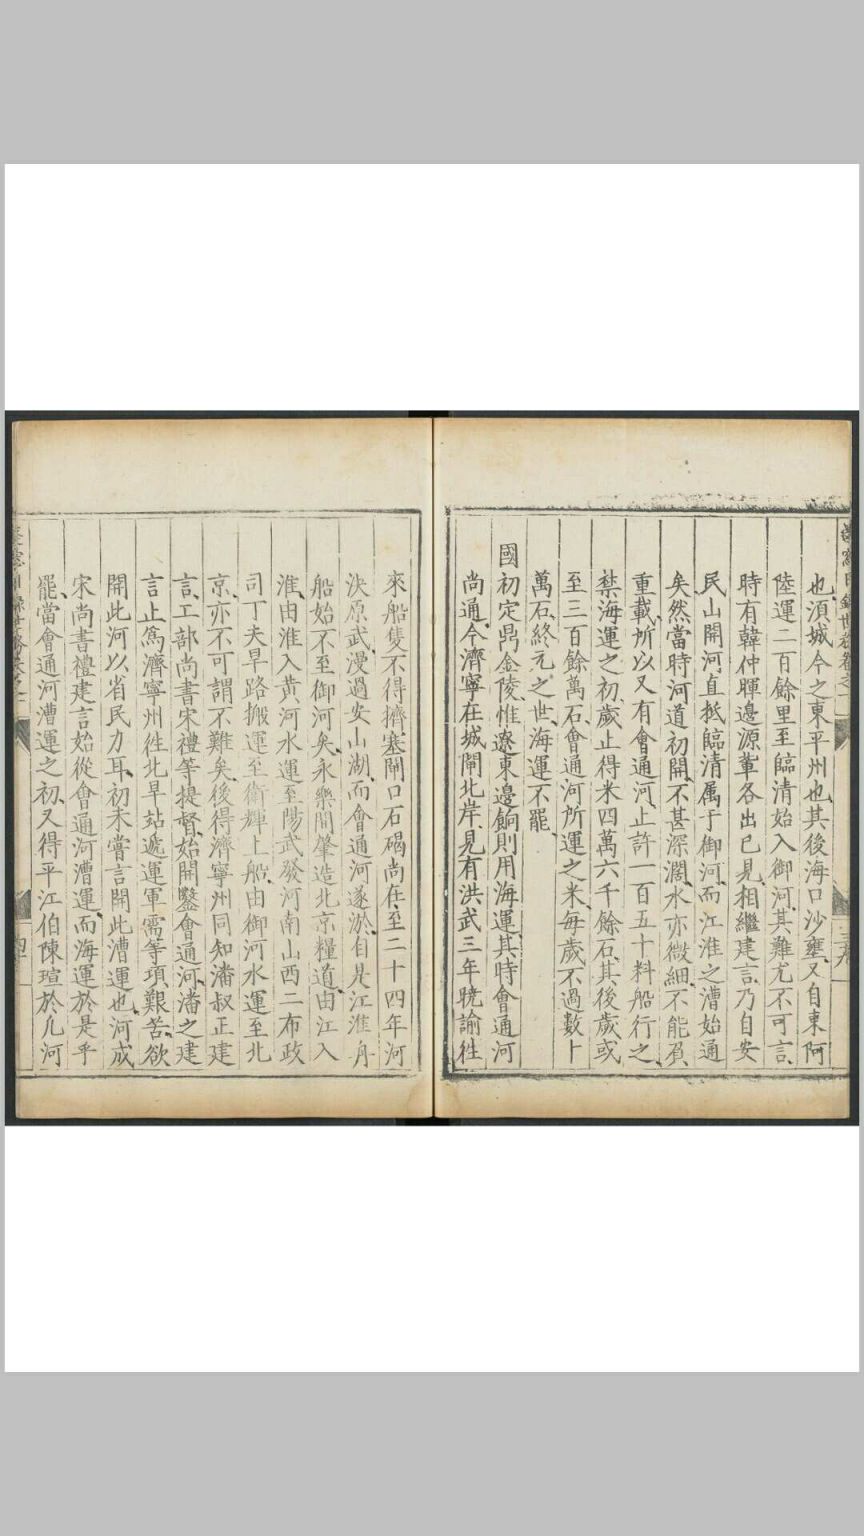 也湏城今之東平州也其後海口沙壅又自東阿
陸運二百餘里至臨清始入御河其難尤不可言
時有韓仲暉邊源軰各出已見相繼建言乃自安
民山開河直抵臨清属于御河而江淮之漕始通
矣然當時河道初開不甚深濶水亦微細不能負
重載所以又有會通河止許一百五十料船行之
禁海運之初歲止得米四萬六千餘石其後歲或
至三百餘萬石會通河所運之米每歲不過數十
萬石終元之世海運不罷
國初定鼎金陵惟遼東邊餉則用海運其時會通河
尚通今濟寧在城閘北岸見有洪武三年曉諭往
來船隻不得擠塞閘口石碣尚在至二十四年河
決原武漫過安山湖而會通河遂淤自是江淮舟
船始不至御河矣永樂間肇造北京糧道由江入
淮由淮入黃河水運至陽武發河南山西二布政
司丁夫旱路搬運至衛輝上船由御河水運至北
京亦不可謂不難矣後得濟寧州同知潘叔正建
言工部尚書宋禮等提督始開鑿會通河潘之建
言止爲濟寧州徃北旱站遞運軍需等項艱苦欲
開此河以省民力耳初未嘗言開此漕運也河成
宋尚書禮建言始從會通河漕運而海運於是乎
罷當會通河漕運之初又得平江伯陳瑄於凡河